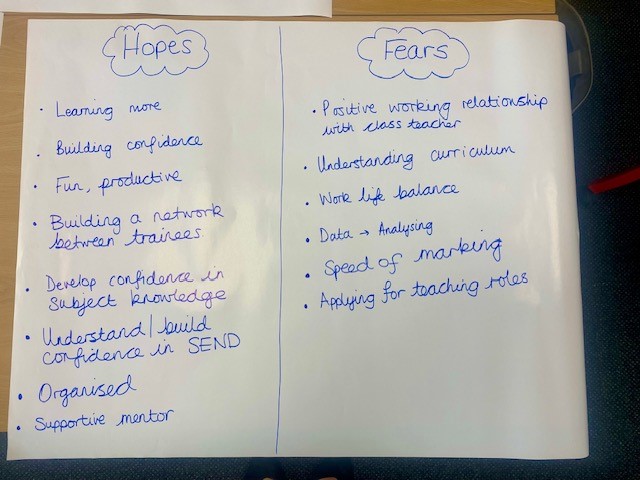 Hopes
• Learning more
• Building confidence
• Fun, productive
• Building a network
between trainees
• Develop confidence in
subject knowledge
• Understand/build
confidence in SEND
• Organised
• Supportive mentor
Fears
• Positive working relationship
with class teacher
• Understanding curriculum
• Work life balance
• Data → Analysing
• Speed of marking
• Applying for teaching roles